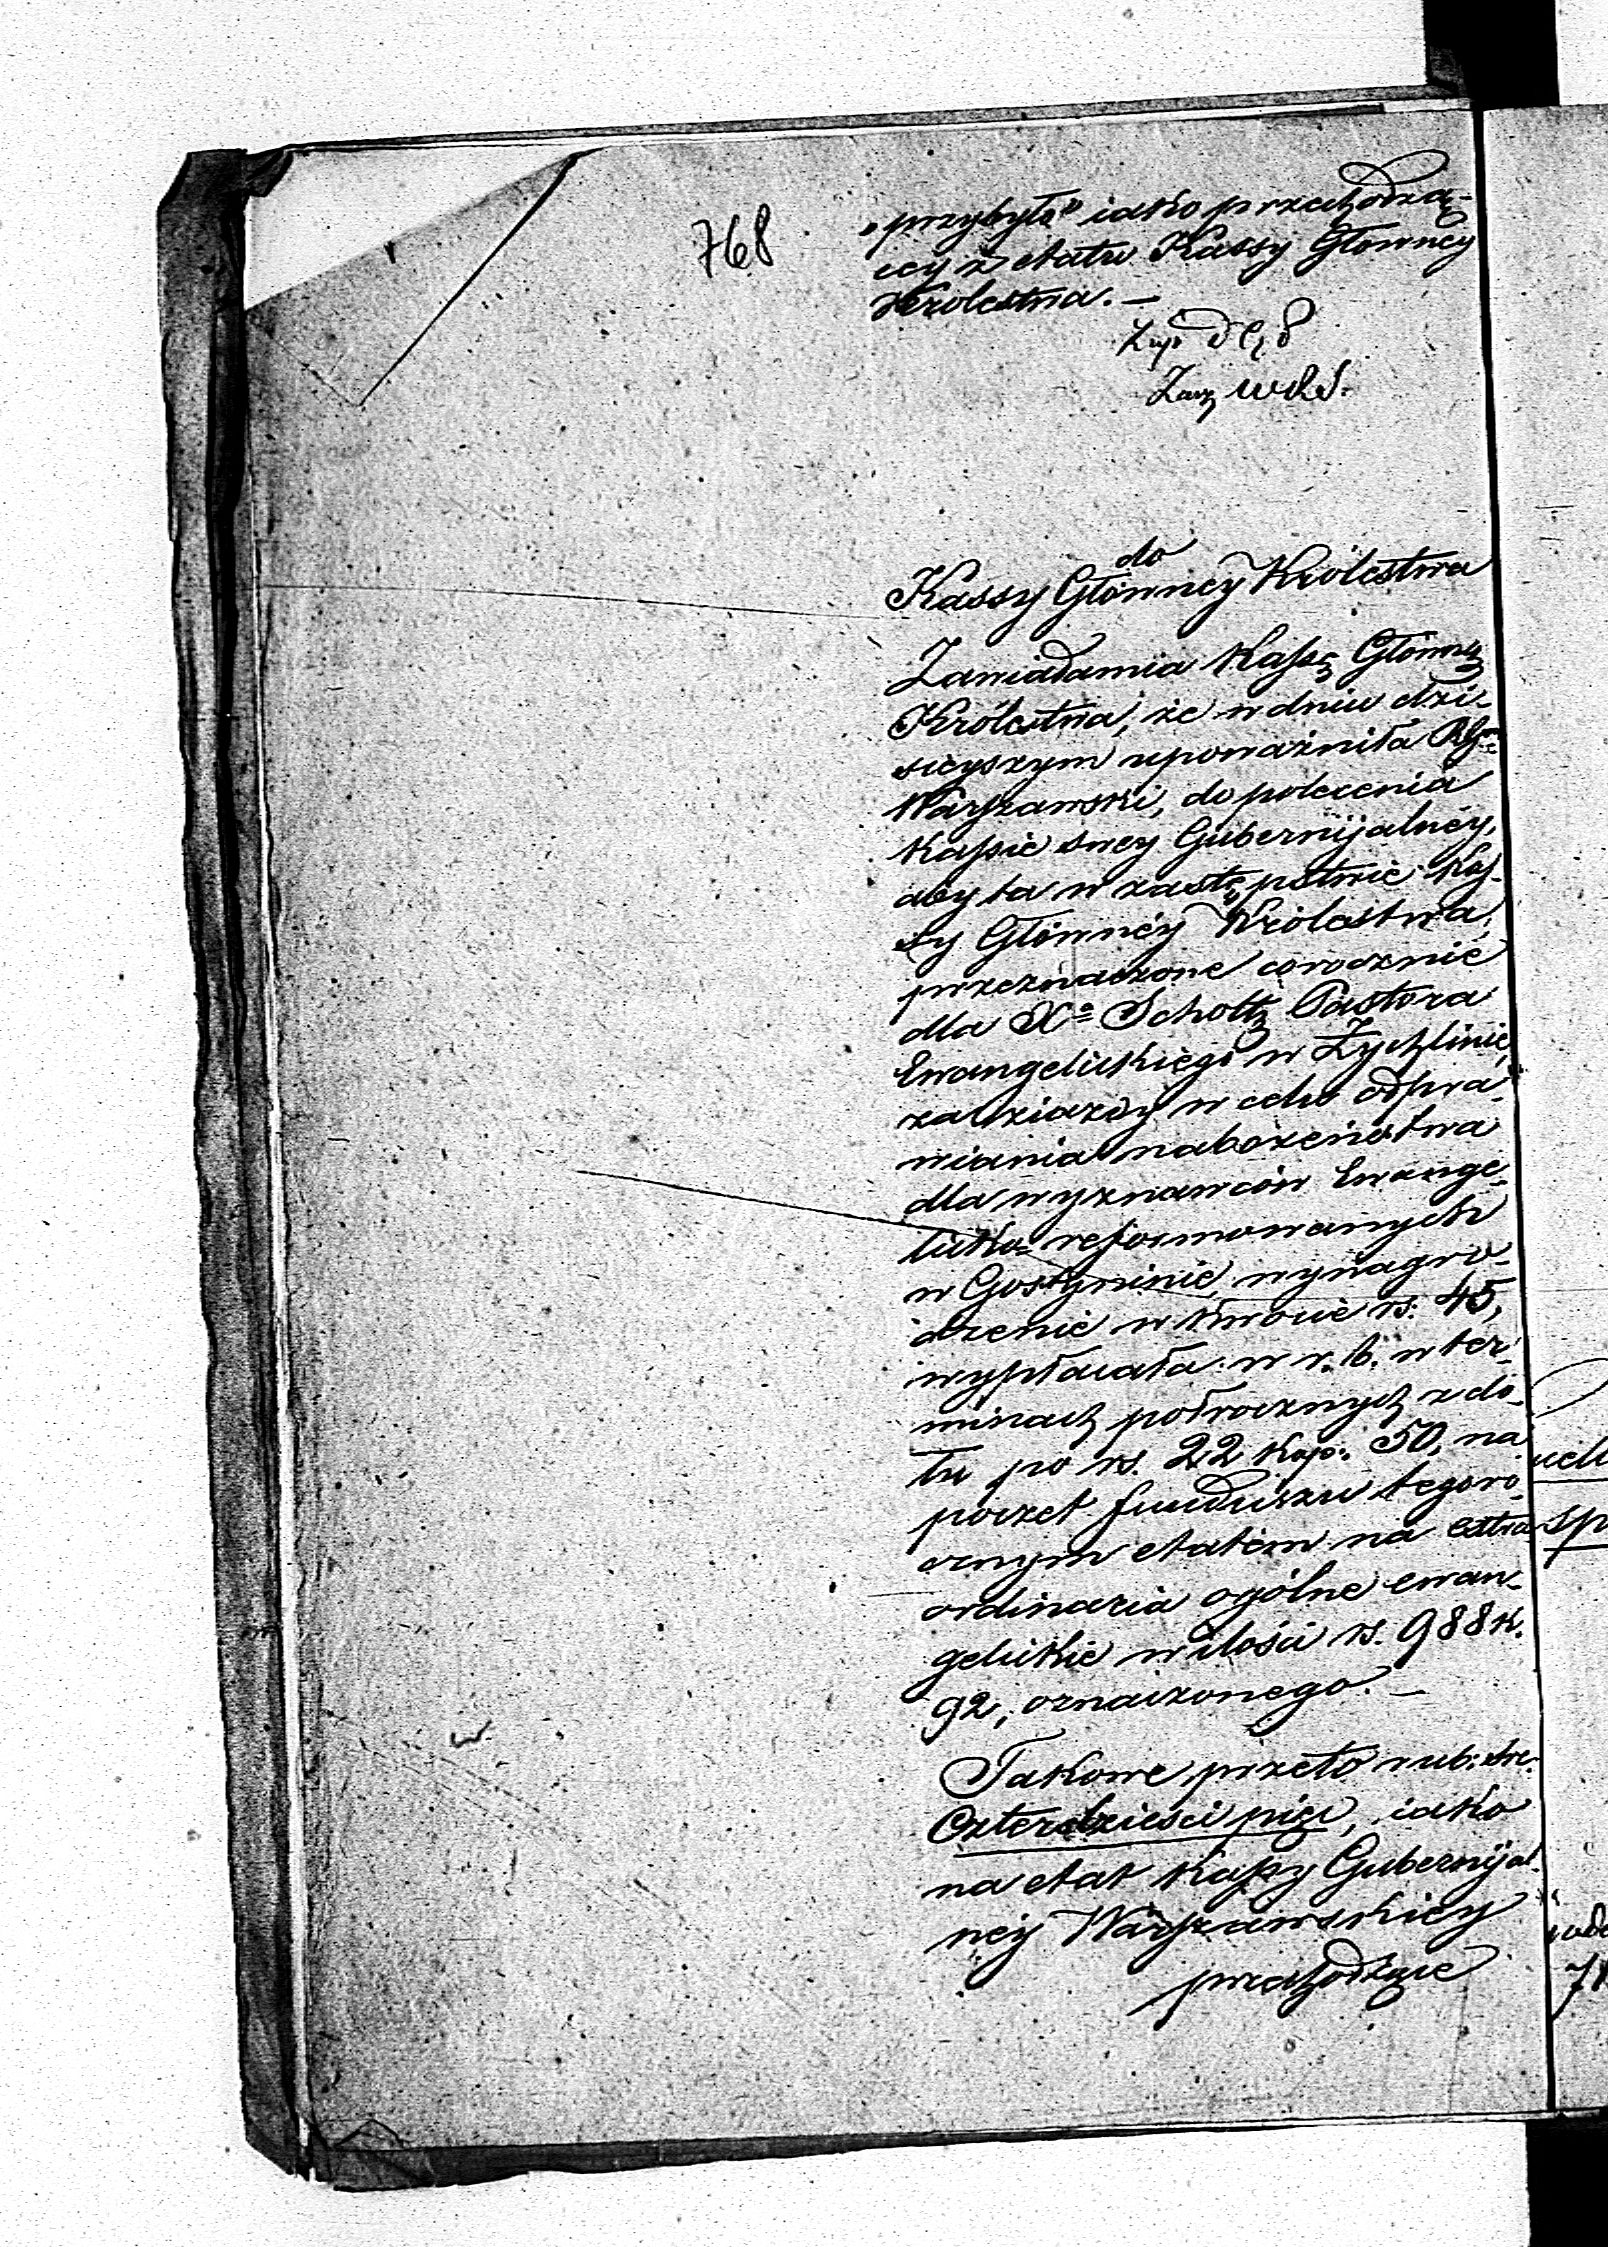 768
„przybyło" iako przechodzą-
cy z etatu Kassy Głowney
Krolestwa. —
do
Kassy Głównéy Królestwa
Zawiadamia Kassę Główną
Królestwa, że w dniu dzi-
sieyszym upoważniła
Warszawski, do polecenia
Kassie swey Gubernijalnéy,
aby ta w zastępstwie Kas-
sy Głównéy Królestwa,
przeznaczone corocznie
dla Xa Scholtz Pastora
Ewangelickiego w Żychlinie,
za ziazdy w celu odpra-
wiania nabożeństwa
dla wyznawców Ewange-
licko-reformowanych
w Gostyninie, wynagro-
dzenie w kwocie rs. 45,
wypłacała w r. b. w ter-
minach półrocznych z do-
łu po rs. 22 kop: 50, na
poczet funduszu tegoro-
cznym etatem na extra
ordinaria ogólne ewan-
gelickie w ilości rs. 988 k.
92, oznaczonego. —
Takowe przeto rub: sre:
czterdzieści pięć, iako
na etat Kassy Gubernijal-
néy Warszawskiey
przechodzące